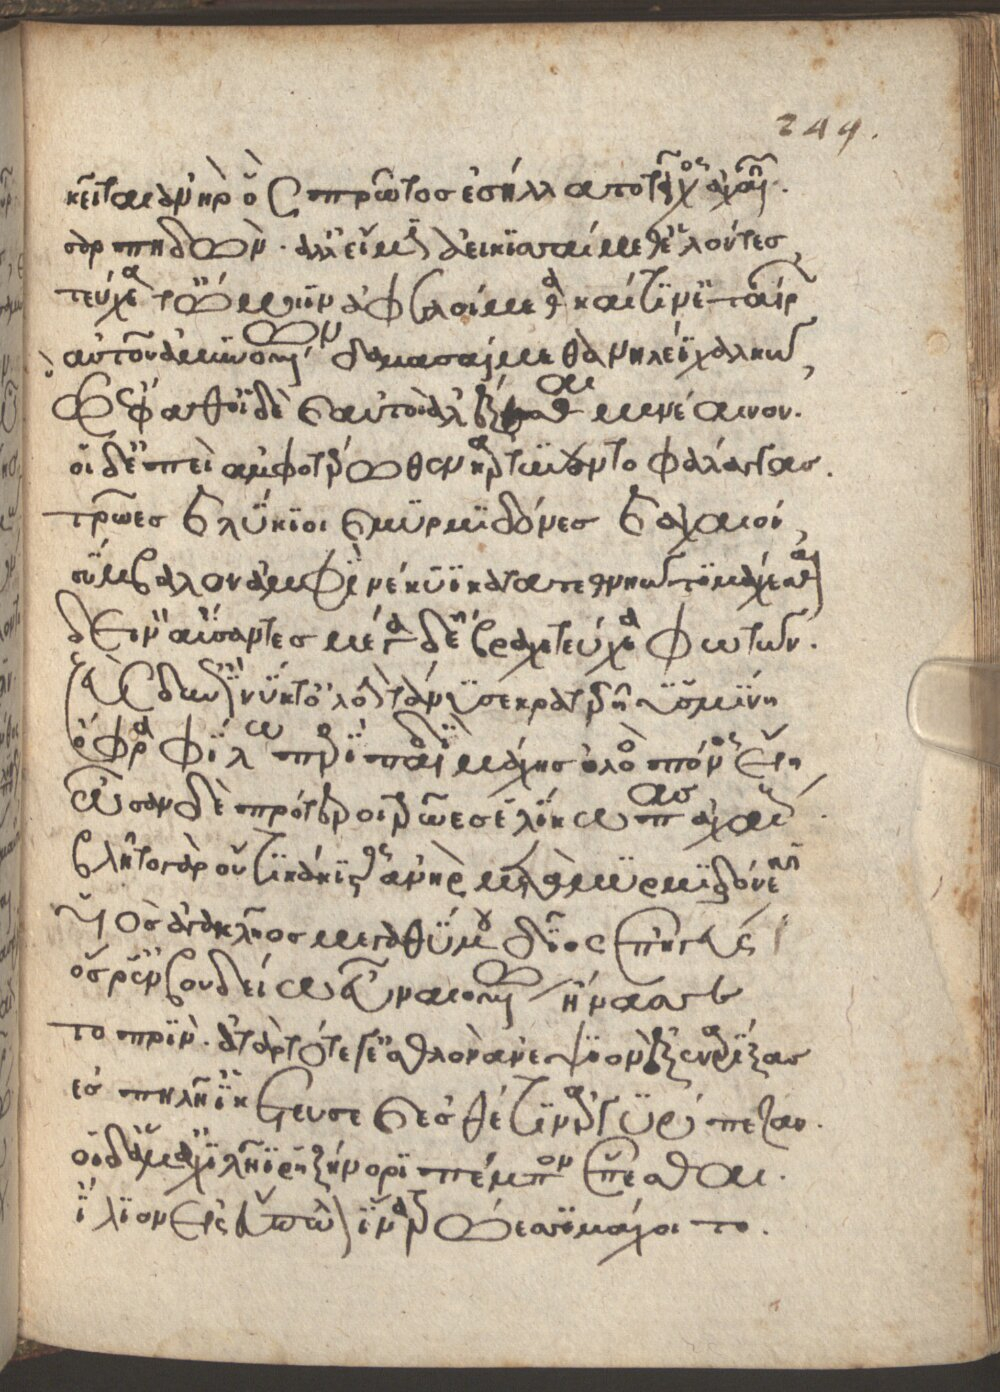 κεῖται ἀνὴρ ὃς πρῶτος ἐσήλλατο τεῖχος ἀχαιῶν.
σαρπηδών. ἀλλ' εἴ μιν ἀεικισσαίμεθ' ἑλόντες,
τεύχεά τ' ὤμοιϊν ἀφελοίμεθα καί τιν' ἑταίρων
αὐτοῦ ἀμυνομένων δαμασαίμεθα νηλέϊ χαλκῶ,
ὣς ἔφαθ' οἱ δὲ καὶ αὐτοὶ ἀλέξασθαι μενέαινον.
οἱ δ' ἐπεὶ ἀμφοτέρωθεν ἐκαρτύναντο φάλαγγας.
τρῶες καὶ λύκιοι καὶ μυρμιδόνες καὶ ἀχαιοί,
σύμβαλον ἀμφὶ νέκυϊ κατατεθνηῶτι μάχεσθαι
δεινὸν ἀΰσαντες μέγα δ' ἔβραχε τεύχεα φωτῶν.
ζεὺς δ' ἐπὶ νύκτ' ὀλοὴν τάνυσε κρατερῆ ὑσμίνη
ὄφρα φίλω περὶ παιδὶ μάχης ὀλοὸς πόνος εἴη,
ὦσαν δὲ πρότεροι τρῶες ἑλίκωπας ἀχαιούς.
βλῆτο γὰρ οὔ τι κάκιστος ἀνὴρ μετὰ μυρμιδόνεσσιν
υἱὸς ἀγακλῆος μεγαθύμου δῖος ἐπηγεύς
ὅς ῥ' ἐν βουδείω εὖ ναιομένω ἤνασσε
τὸ πρίν. ἀτὰρ τότε γ' ἐσθλὸν ἀνεψιὸν ἐξεναρίξας
ἐς πηλῆ' ἱκέτευσε καὶ ἐς θέτιν ἀργυρόπεζαν.
οἱ δ' ἅμ' ἀχιλῆϊ ῥηξήνορι πέμπον ἕπεσθαι.
ἴλιον εἰς εὔπωλον ἵνα τρώεσσι μάχοιτο.